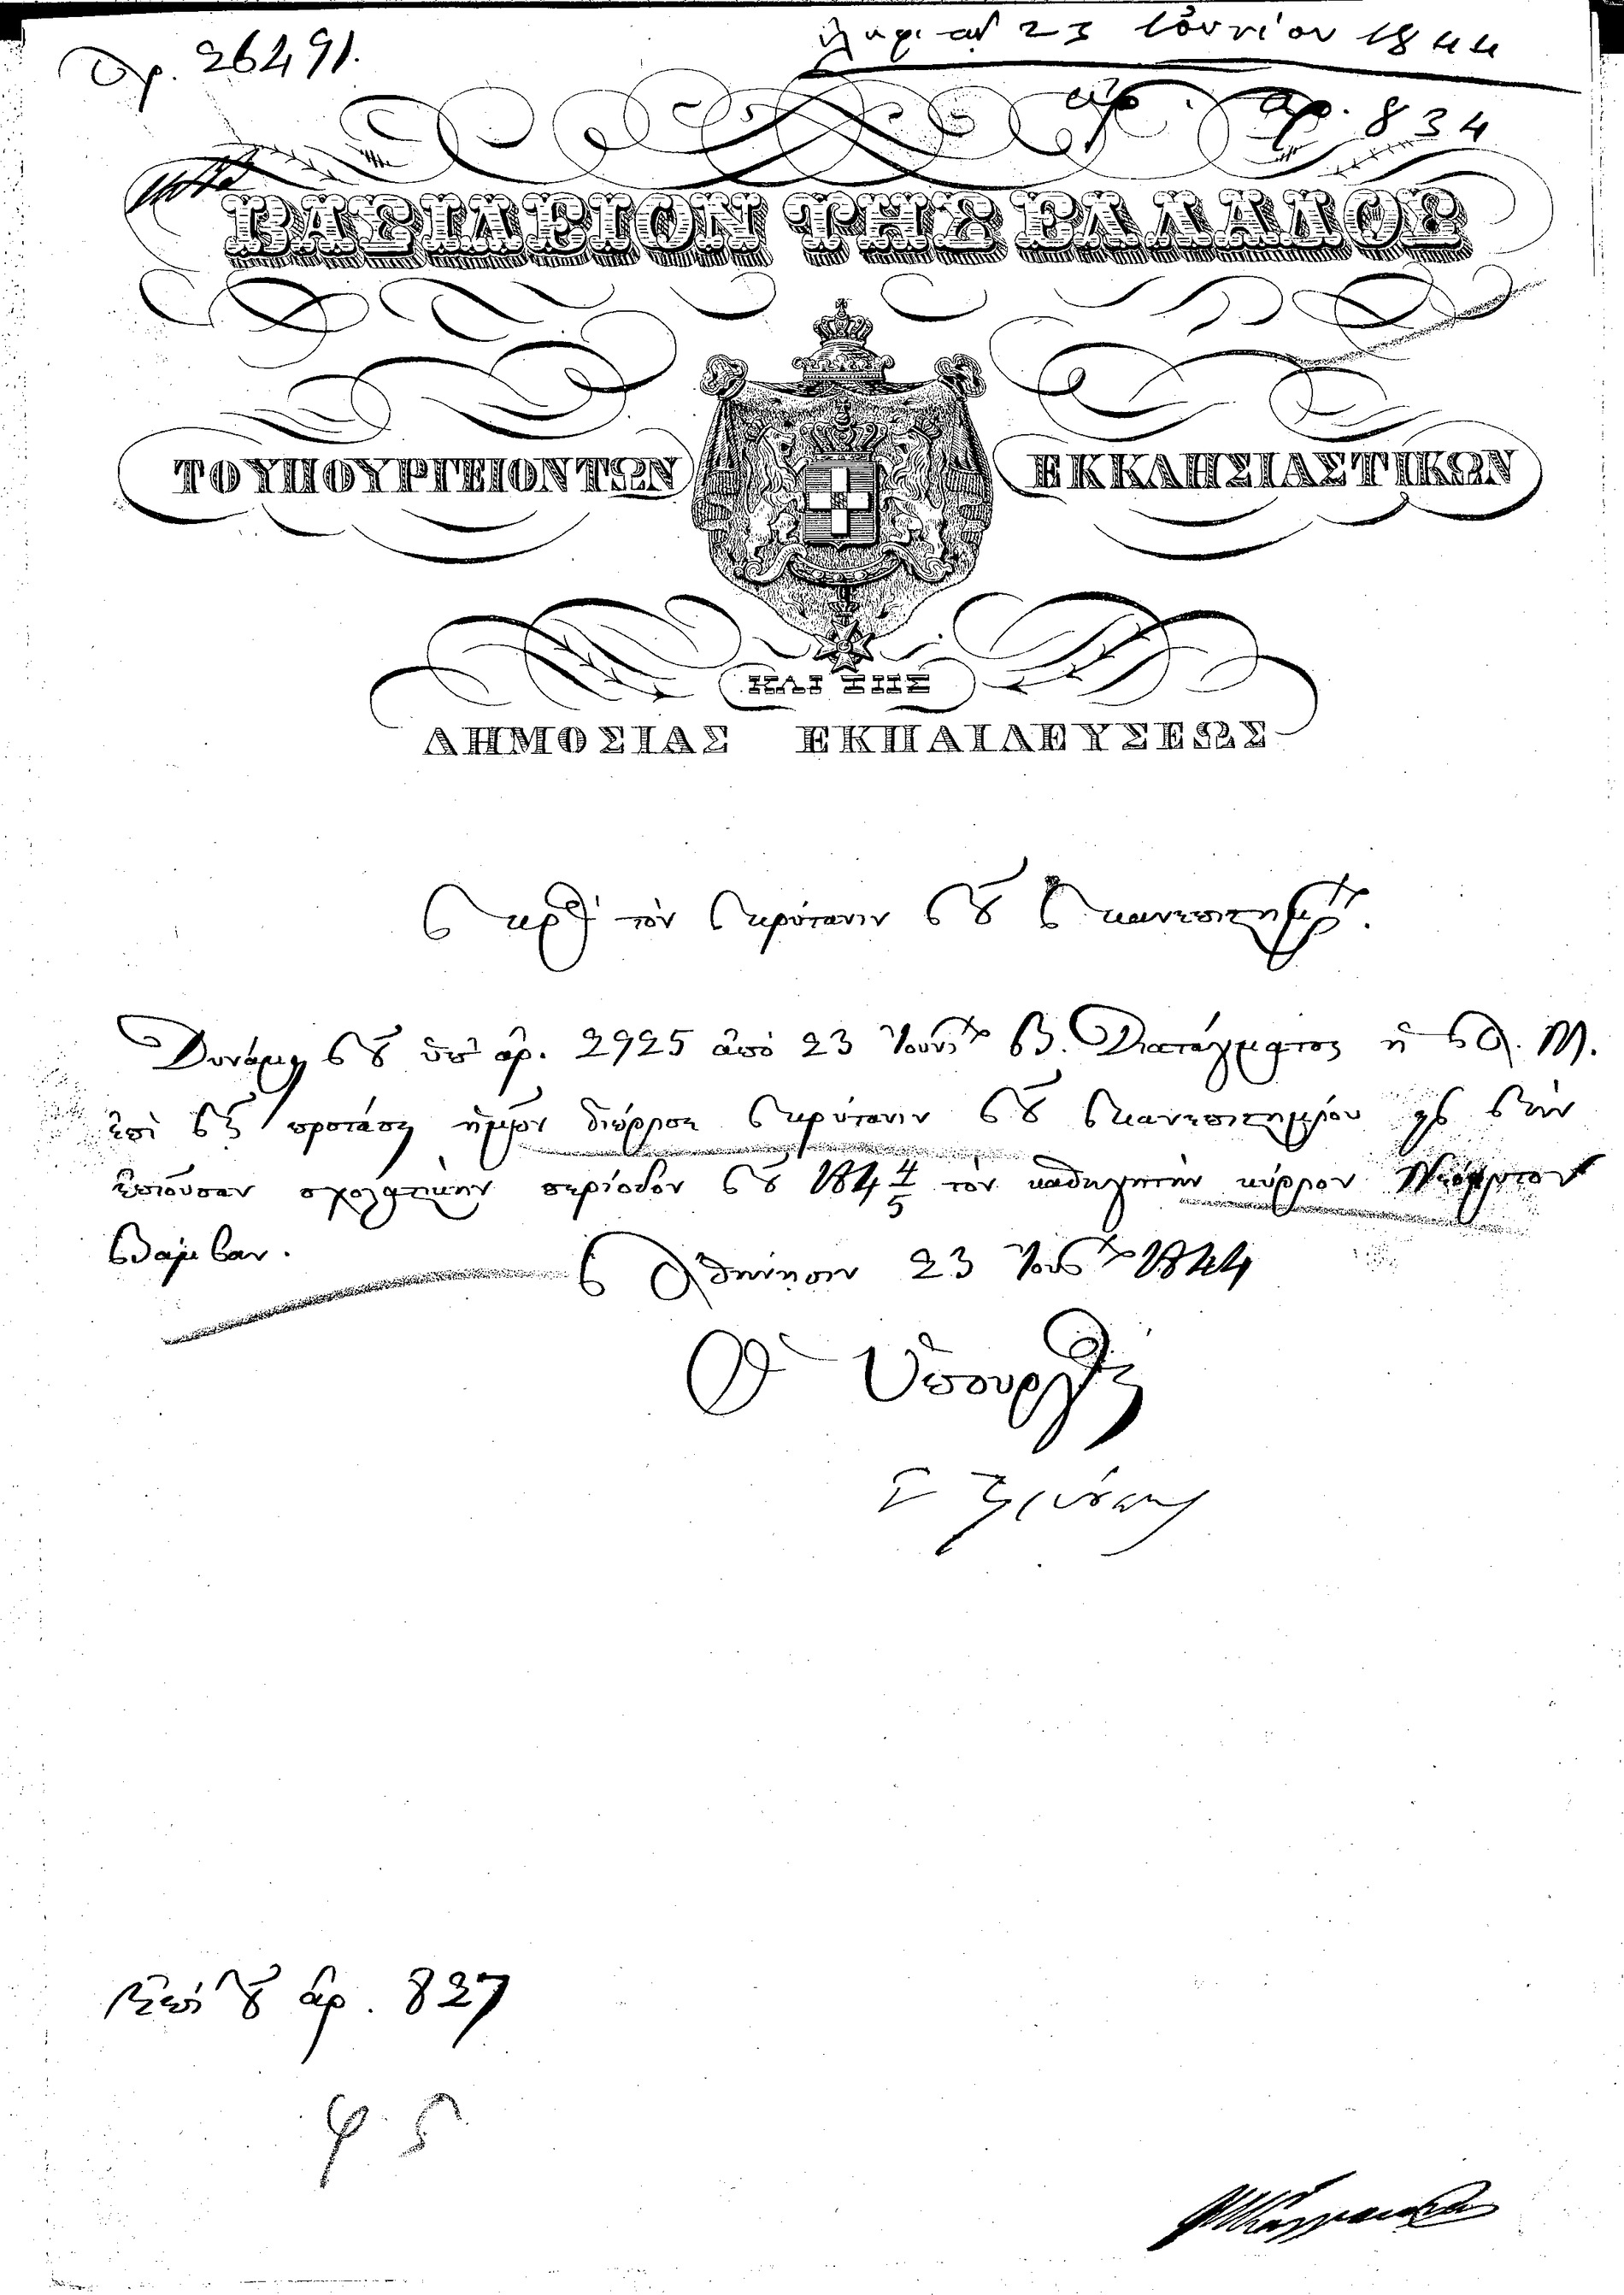 ἀρ. 26491.
23 Ἰουνίου 1844
ἀρ. 834
ΒΑΣΙΛΕΙΟΝ ΤΗΣ ΕΛΛΑΔΟΣ
ΤΟ ΥΠΟΥΡΓΕΙΟΝ ΤΩΝ ΕΚΚΛΗΣΙΑΣΤΙΚΩΝ
ΚΑΙ ΤΗΣ
ΔΗΜΟΣΙΑΣ ΕΚΠΑΙΔΕΥΣΕΩΣ
Πρὸς τὸν Πρύτανιν τοῦ Πανεπιστημίου.
Δυνάμει τοῦ ὑπ' ἀρ. 2925 ἀπὸ 23 Ἰουνίου Β. Διατάγματος ἡ Α. Μ.
ἐπὶ τῇ προτάσει ἡμῶν διώρισε πρύτανιν τοῦ Πανεπιστημίου διὰ τὴν
ἐπιοῦσαν σχολαστικὴν περίοδον τοῦ 184 4/5 τὸν καθηγητὴν κύριον Νεόφυτον
Βάμβαν.
Ἀθήνησιν 23 Ἰουνίου 1844
Ὁ Ὑπουργὸς
ἀρ. 827